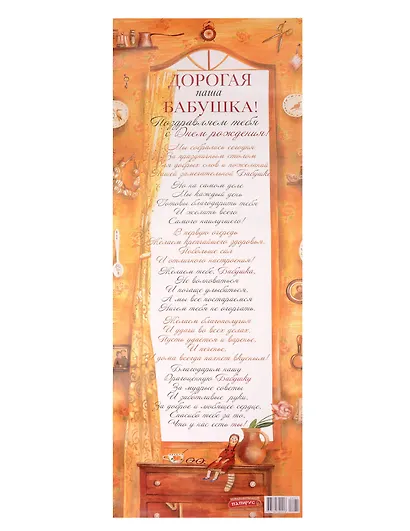 ДОРОГАЯ
наша
БАБУШКА!
Поздравляем тебя
с Днем рождения!
Мы собрались сегодня
За праздничным столом
Для добрых слов и пожеланий
Нашей замечательной Бабушке.
Но на самом деле,
Мы каждый день
Готовы благодарить тебя
И желать всего
Самого наилучшего!
В первую очередь
Желаем крепчайшего здоровья,
Побольше сил
И отличного настроения!
Желаем тебе, Бабушка,
Не волноваться
И почаще улыбаться,
А мы все постараемся
Ничем тебя не огорчать.
Желаем благополучия
И удачи во всех делах,
Пусть удается и варенье,
И печенье,
дома всегда пахнет вкусным!
Благодарим нашу
Драгоценную Бабушку
За мудрые советы
И заботливые руки,
За доброе и любящее сердце,
Спасибо тебе за то,
Что у нас есть ты!
ПАПИРУС